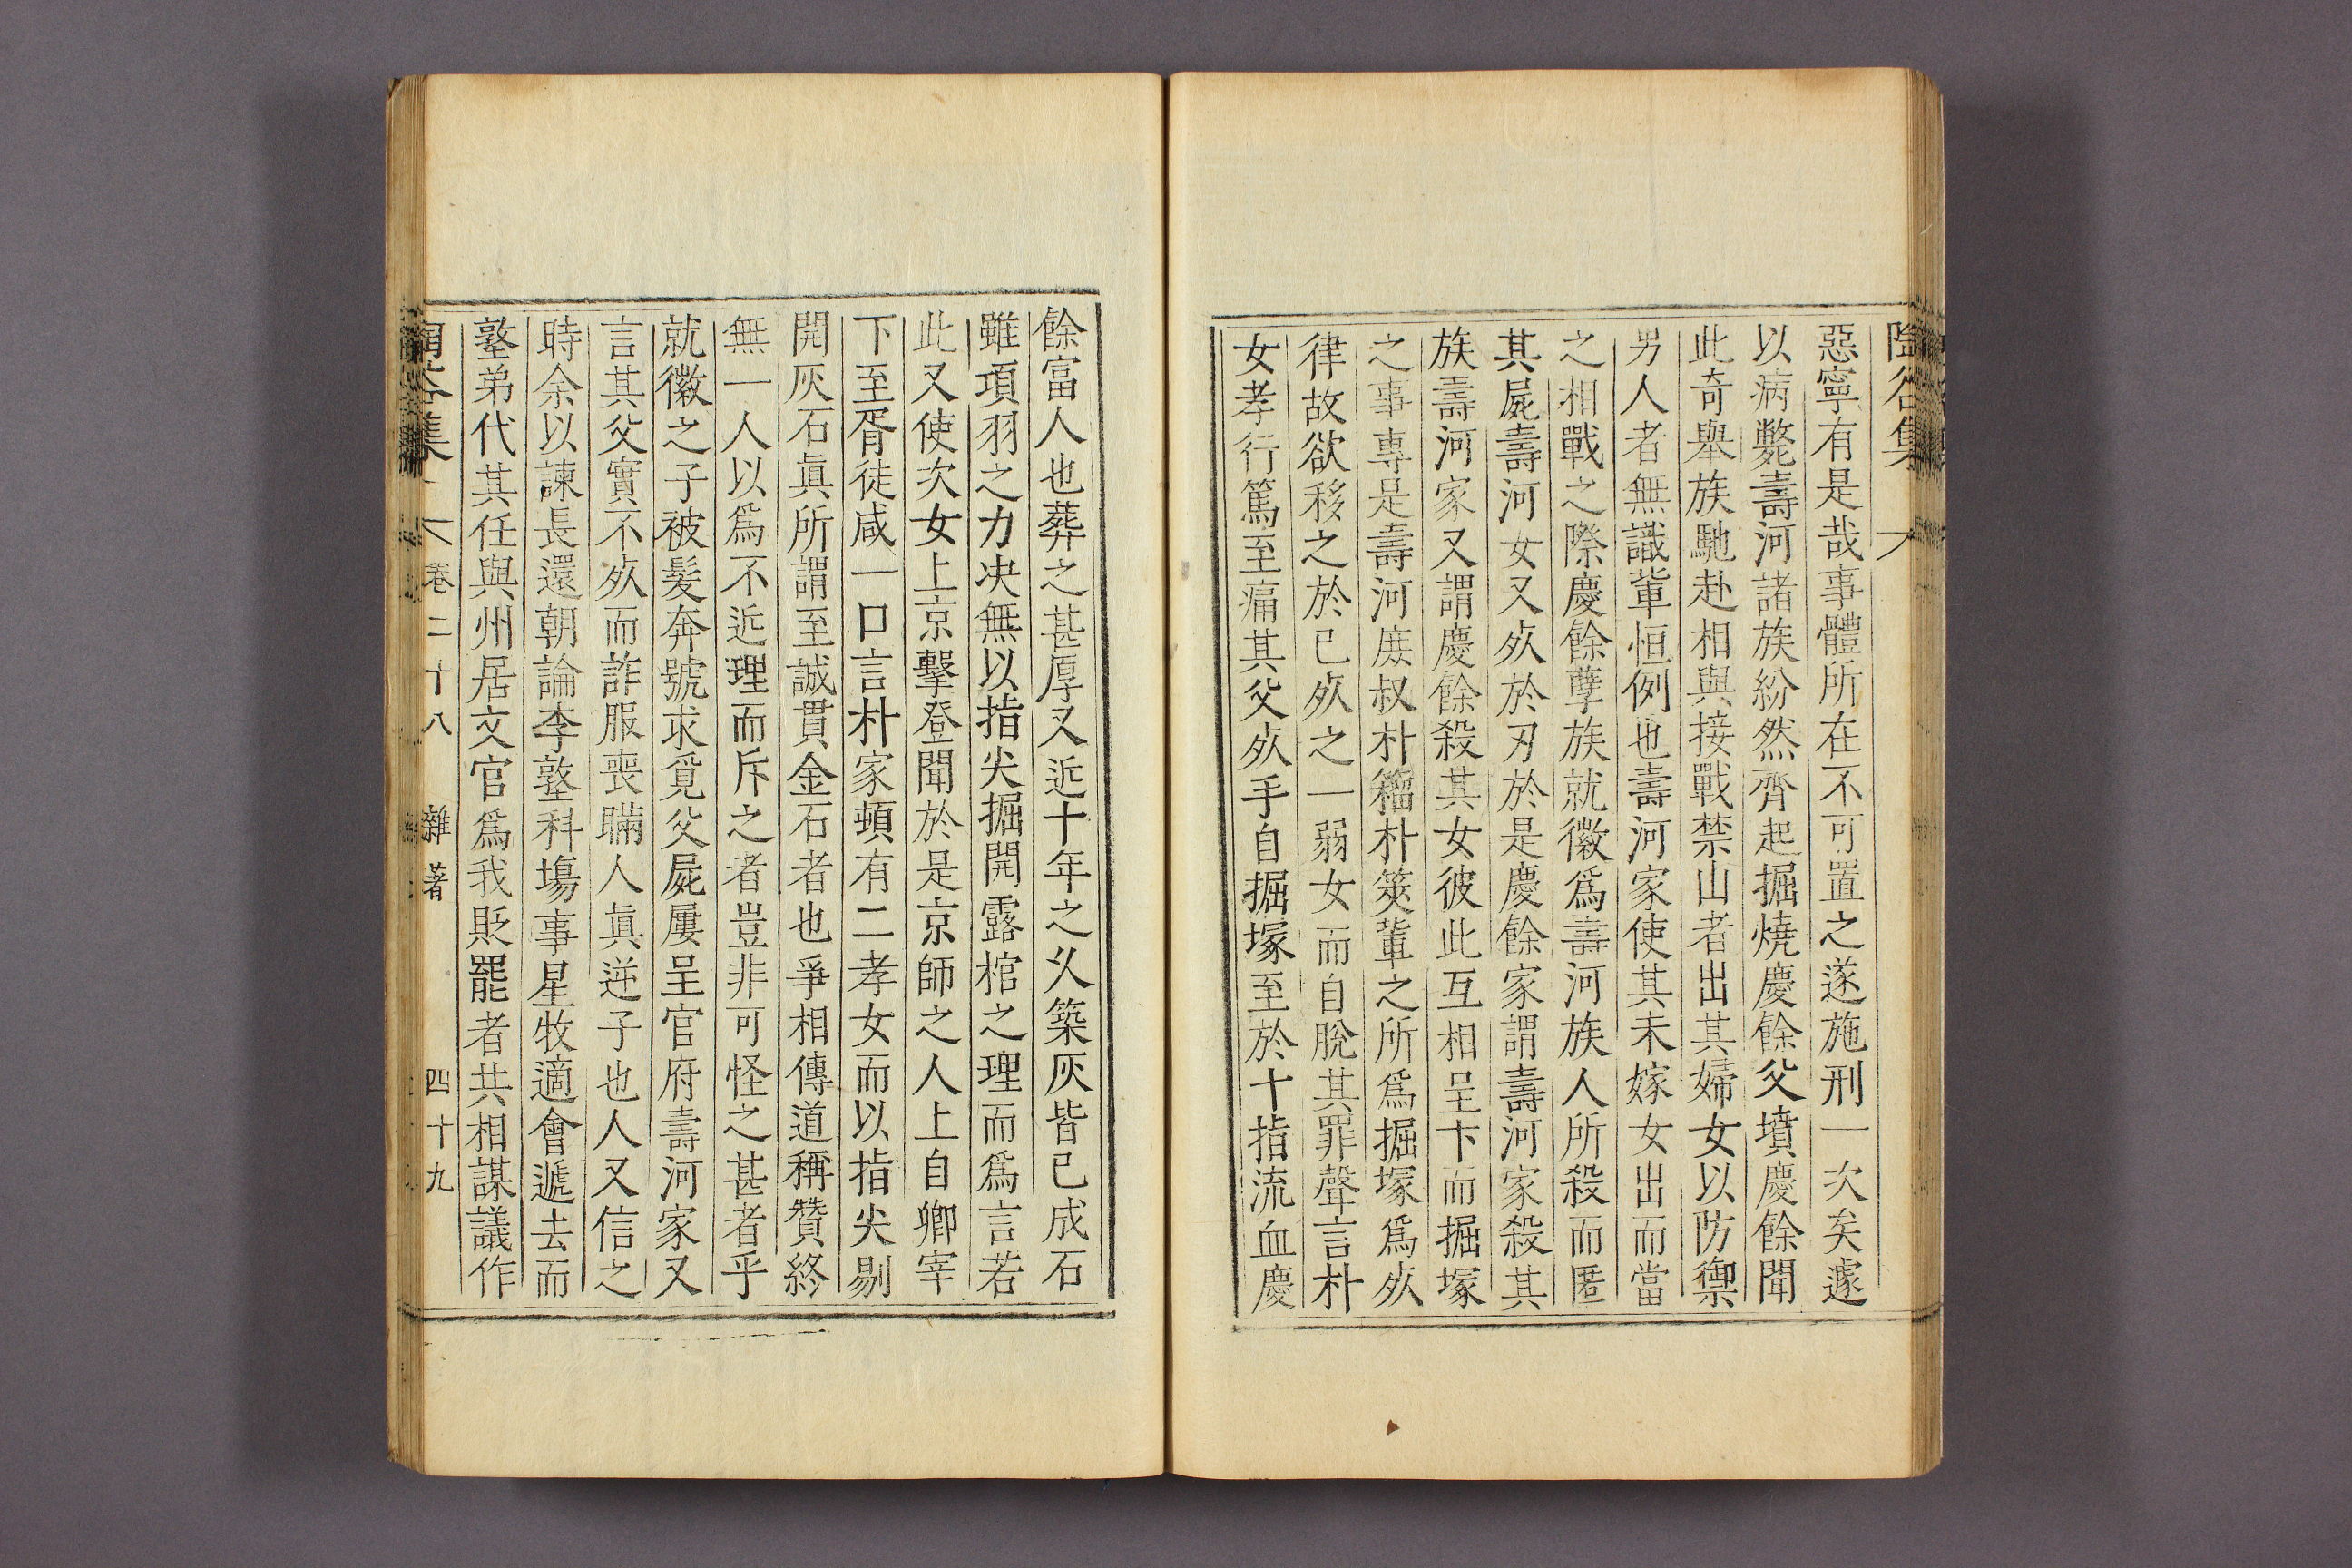 陶谷集
惡寧有是哉事體所在不可置之遂施刑一次矣遽
以病斃壽河諸族紛然齊起掘燒慶餘父墳慶餘聞
此奇舉族馳赴相與接戰禁山者出其婦女以防禦
男人者無識輩恒例也壽河家使其未嫁女出而當
之相戰之際慶餘孽族就徽爲壽河族人所殺而匿
其屍壽河女又歿於刃於是慶餘家謂壽河家殺其
族壽河家又謂慶餘殺其女彼此互相呈卞而掘塚
之事專是壽河庶叔朴籀朴筴輩之所爲掘塚爲歿
律故欲移之於已歿之一弱女而自脫其罪聲言朴
女孝行篤至痛其父歿手自掘塚至於十指流血慶
餘富人也葬之甚厚又近十年之久築灰皆已成石
雖項羽之力决無以指尖掘開露棺之理而爲言若
此又使次女上京擊登聞於是京師之人上自卿宰
下至胥徒咸一口言朴家頓有二孝女而以指尖剔
開灰石眞所謂至誠貫金石者也爭相傳道稱贊終
無一人以爲不近理而斥之者豈非可怪之甚者乎
就徽之子被髮奔號求覓父屍屢呈官府壽河家又
言其父實不歿而詐服喪瞞人眞逆子也人又信之
時余以諫長還朝論李墪科塲事星牧適會遞去而
墪弟代其任與州居文官爲我貶罷者共相謀議作
陶谷集 卷二十八 雜著 四十九